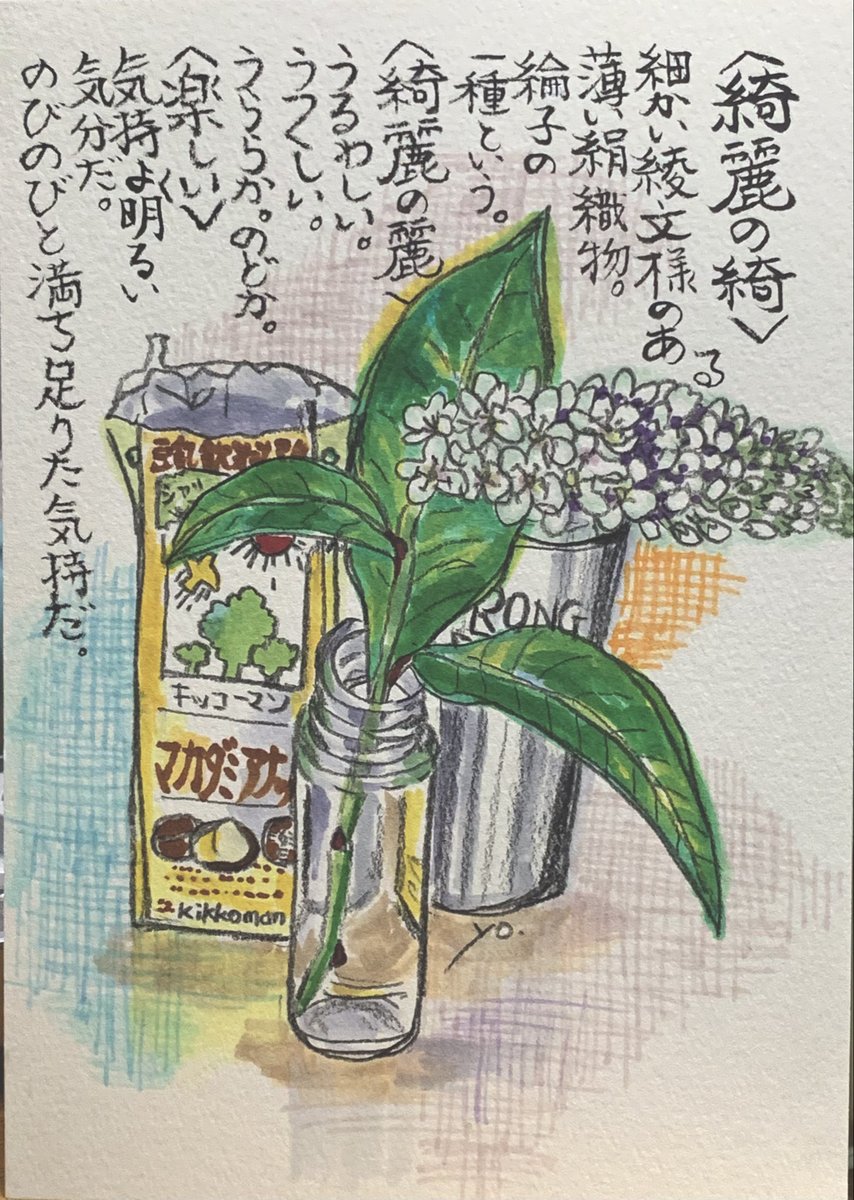 〈綺麗の綺〉
細かい綾文様のある
薄い絹織物。
綸子の
一種という。
〈綺麗の麗〉
うるわしい。
うつくしい。
うららか。のどか。
〈楽しい〉
気持よく明るい
気分だ。
のびのびと満ち足りた気持だ。
キッコーマン
マカダミアナッ
kikkoman
RONG
yo.